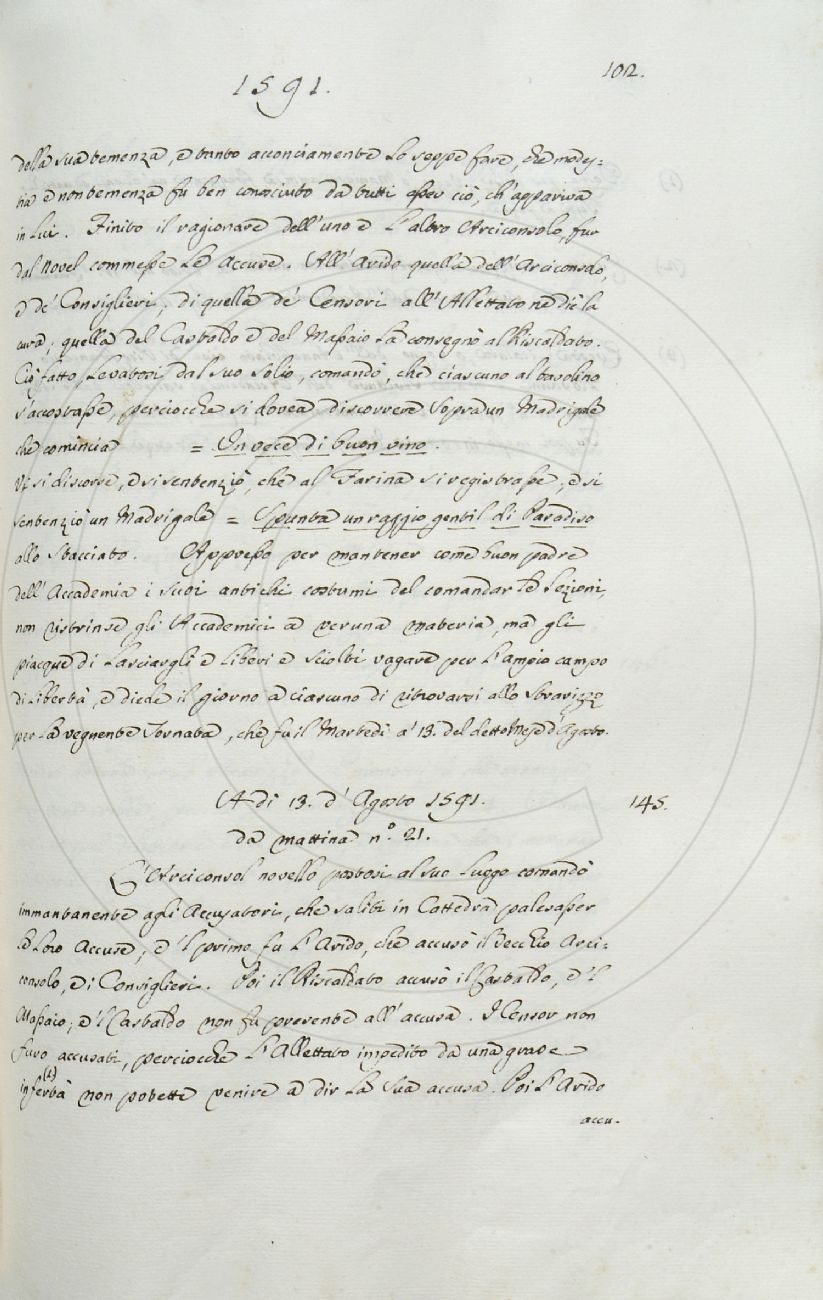 1591.
102.
della sua temenza, e tanto acconciamente lo seppe fare, che modes=
tia e non temenza fu ben conosciuto da tutti esser ciò, ch'appariva
in lui. Finito il ragionare dell'uno e l'altro Arciconsolo, fur
dal Novel commesse le Accuse. All'Arido quella dell'Arciconsolo,
e de' Consiglieri; di quella de' Censori all'Allettato ne diè la
cura; quella del Castaldo e del Massaio la consegnò al Riscaldato.
Ciò fatto, levatosi dal suo solio, comandò, che ciascuno al tavolino
s'accostasse, perciocche si dovea discorrere sopra un Madrigale
che comincia = Un vece di buon vino.
Vi si discorse, e si sentenziò, che al Farina si registrasse, e si
sentenziò un Madrigale = Spunta un raggio gentil di Paradiso
allo Stacciato. Appresso per mantener come buon padre
dell'Accademia i suoi antichi costumi del comandar le Lezioni,
non ristrinse gli Accademici a veruna materia, ma gli
piacque di lasciargli e liberi e sciolti vagare per l'ampio campo
di libertà, e diede il giorno a ciascuno di ritrovarsi allo Stravizzo
per la vegnente Tornata, che fu il Martedì a' 13. del detto Mese d'Agosto.
A dì 13. d'Agosto 1591.
145.
da mattina n.º 21.
L'Arciconsol novello postosi al suo luogo comandò
immantanente agli Accusatori, che saliti in Cattedra palesasser
le loro Accuse, e 'l primo fu l'Arido, che accusò il vecchio Arci=
consolo, e i Consiglieri. Poi il Riscaldato accusò il Castaldo, e 'l
Massaio; e 'l Castaldo non fu presente all'accusa. I Censor non
furo accusati, perciocche l'Allettato impedito da una grave
infertà (1) non potette venire a dir la sua accusa. Poi l'Arido
accu-